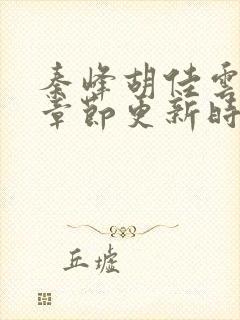 秦峰胡佳雲
章節更新時
丘墟